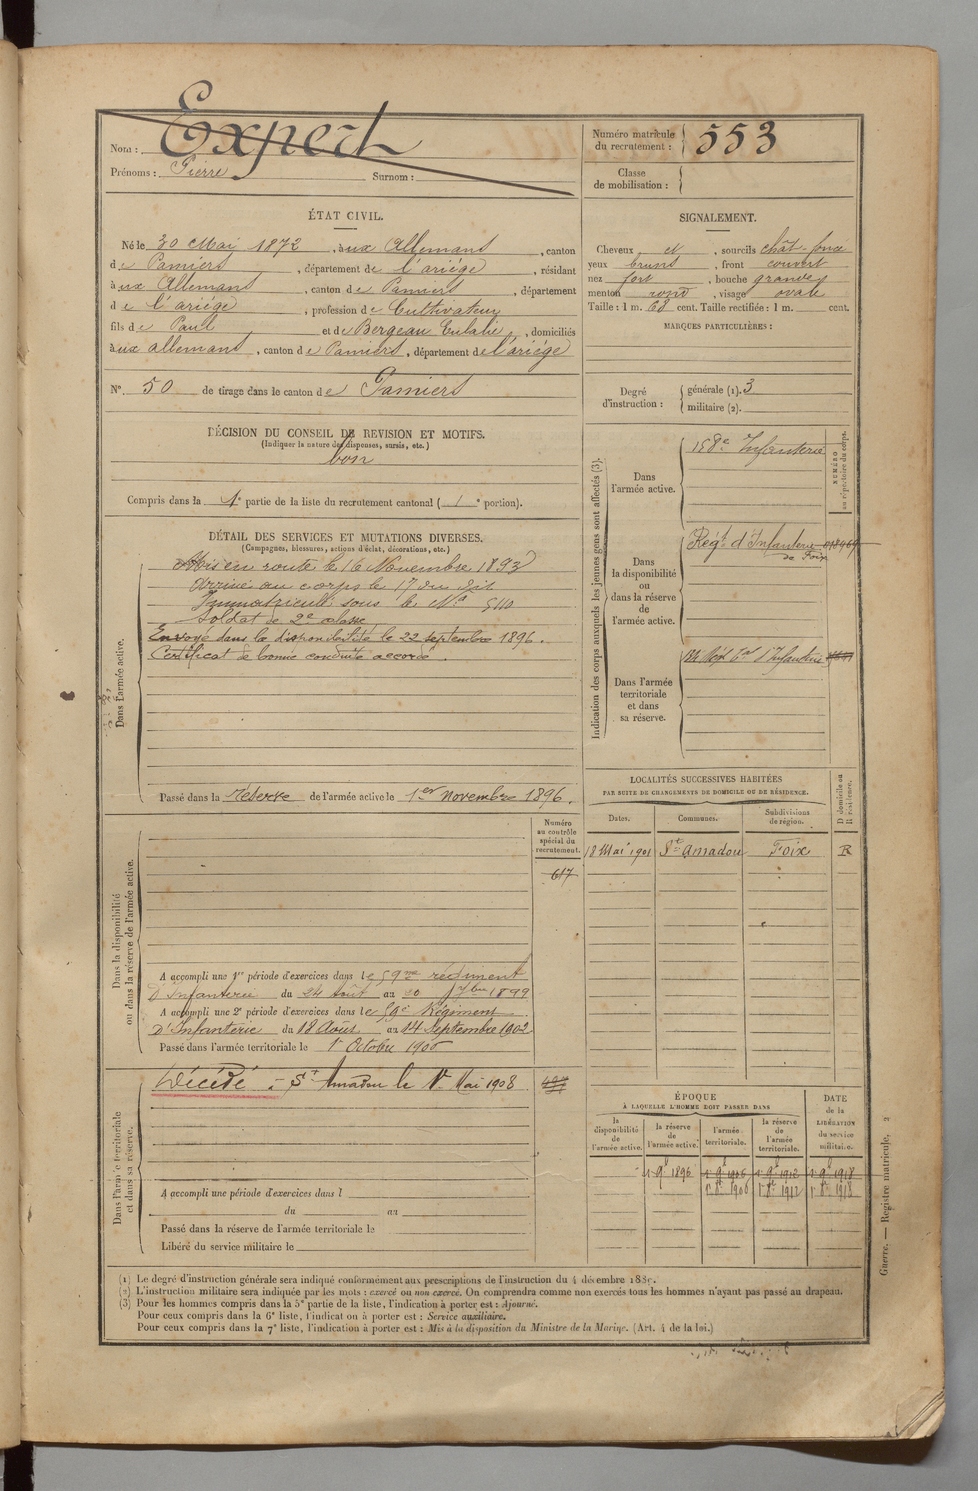 Nom : Expert
Prénoms : Pierre Surnom :
Numéro matricule du recrutement : 553
Classe de mobilisation :
ÉTAT CIVIL.
Né le 30 Mai 1872, à ux Allemans, canton
de Pamiers, département de l'ariége, résidant
à ux Allemans, canton de Pamiers, département
de l'ariége, profession de Cultivateur
fils de Paul et de Bergeau Eulalie, domiciliés
à ux allemans, canton de Pamiers, département de l'ariége
N° 50 de tirage dans le canton de Pamiers
SIGNALEMENT.
Cheveux et, sourcils chât-fonce
yeux bruns, front couvert
nez fort, bouche grande
menton rond, visage ovale
Taille : 1 m. 68 cent. Taille rectifiée : 1 m. cent.
MARQUES PARTICULIÈRES :
Degré d'instruction : générale (1). 3
militaire (2).
DÉCISION DU CONSEIL DE REVISION ET MOTIFS.
(Indiquer la nature des dispenses, sursis, etc.)
bon
Compris dans la 1e partie de la liste du recrutement cantonal ( 1e portion).
DÉTAIL DES SERVICES ET MUTATIONS DIVERSES.
(Campagnes, blessures, actions d'éclat, décorations, etc.)
Dans l'armée active.
Mis en route le 16 Novembre 1893
Arrivé au corps le 17 du dit
Immatriculé sous le No 5110
Soldat de 2e classe
Envoyé dans la disponibilité le 22 septembre 1896.
Certificat de bonne conduite accordé.
Passé dans la réserve de l'armée active le 1er novembre 1896.
Indication des corps auxquels les jeunes gens sont affectés (3).
NUMÉRO au répertoire du corps.
Dans l'armée active.
158e Infanterie
Dans la disponibilité ou dans la réserve de l'armée active.
Régt d'Infanterie
de Foix
Dans l'armée territoriale et dans sa réserve.
134 Régt Tal d'Infanterie
LOCALITÉS SUCCESSIVES HABITÉES
PAR SUITE DE CHANGEMENTS DE DOMICILE OU DE RÉSIDENCE.
D domicile ou R résidence.
Dates. Communes. Subdivisions de région.
18 Mai 1901 St Amadou Foix R
Numéro au contrôle spécial du recrutement.
617
Dans la disponibilité ou dans la réserve de l'armée active.
A accompli une 1re période d'exercices dans le 59me régiment
D'Infanterie du 24 Août au 20 7bre 1899
A accompli une 2e période d'exercices dans le 59e Régiment
D'Infanterie du 18 Août au 14 Septembre 1902
Passé dans l'armée territoriale le 1r Octobre 1906
Dans l'armée territoriale et dans sa réserve.
Décédé à St Amadou le 1r Mai 1908
A accompli une période d'exercices dans l
du au
Passé dans la réserve de l'armée territoriale le
Libéré du service militaire le
ÉPOQUE
À LAQUELLE L'HOMME DOIT PASSER DANS
DATE de la LIBÉRATION du service militaire.
la disponibilité de l'armée active. la réserve de l'armée active. l'armée territoriale. la réserve de l'armée territoriale.
1r 9b 1896 1r 9b 1906 1r 9b 1912 1r 9b 1918
1r 8b 1906 1r 8b 1912 1r 8b 1918
Guerre. — Registre matricule. 2
(1) Le degré d'instruction générale sera indiqué conformément aux prescriptions de l'instruction du 4 décembre 1889.
(2) L'instruction militaire sera indiquée par les mots : exercé ou non exercé. On comprendra comme non exercés tous les hommes n'ayant pas passé au drapeau.
(3) Pour les hommes compris dans la 5e partie de la liste, l'indication à porter est : Ajourné.
Pour ceux compris dans la 6e liste, l'indication à porter est : Service auxiliaire.
Pour ceux compris dans la 7e liste, l'indication à porter est : Mis à la disposition du Ministre de la Marine. (Art. 4 de la loi.)